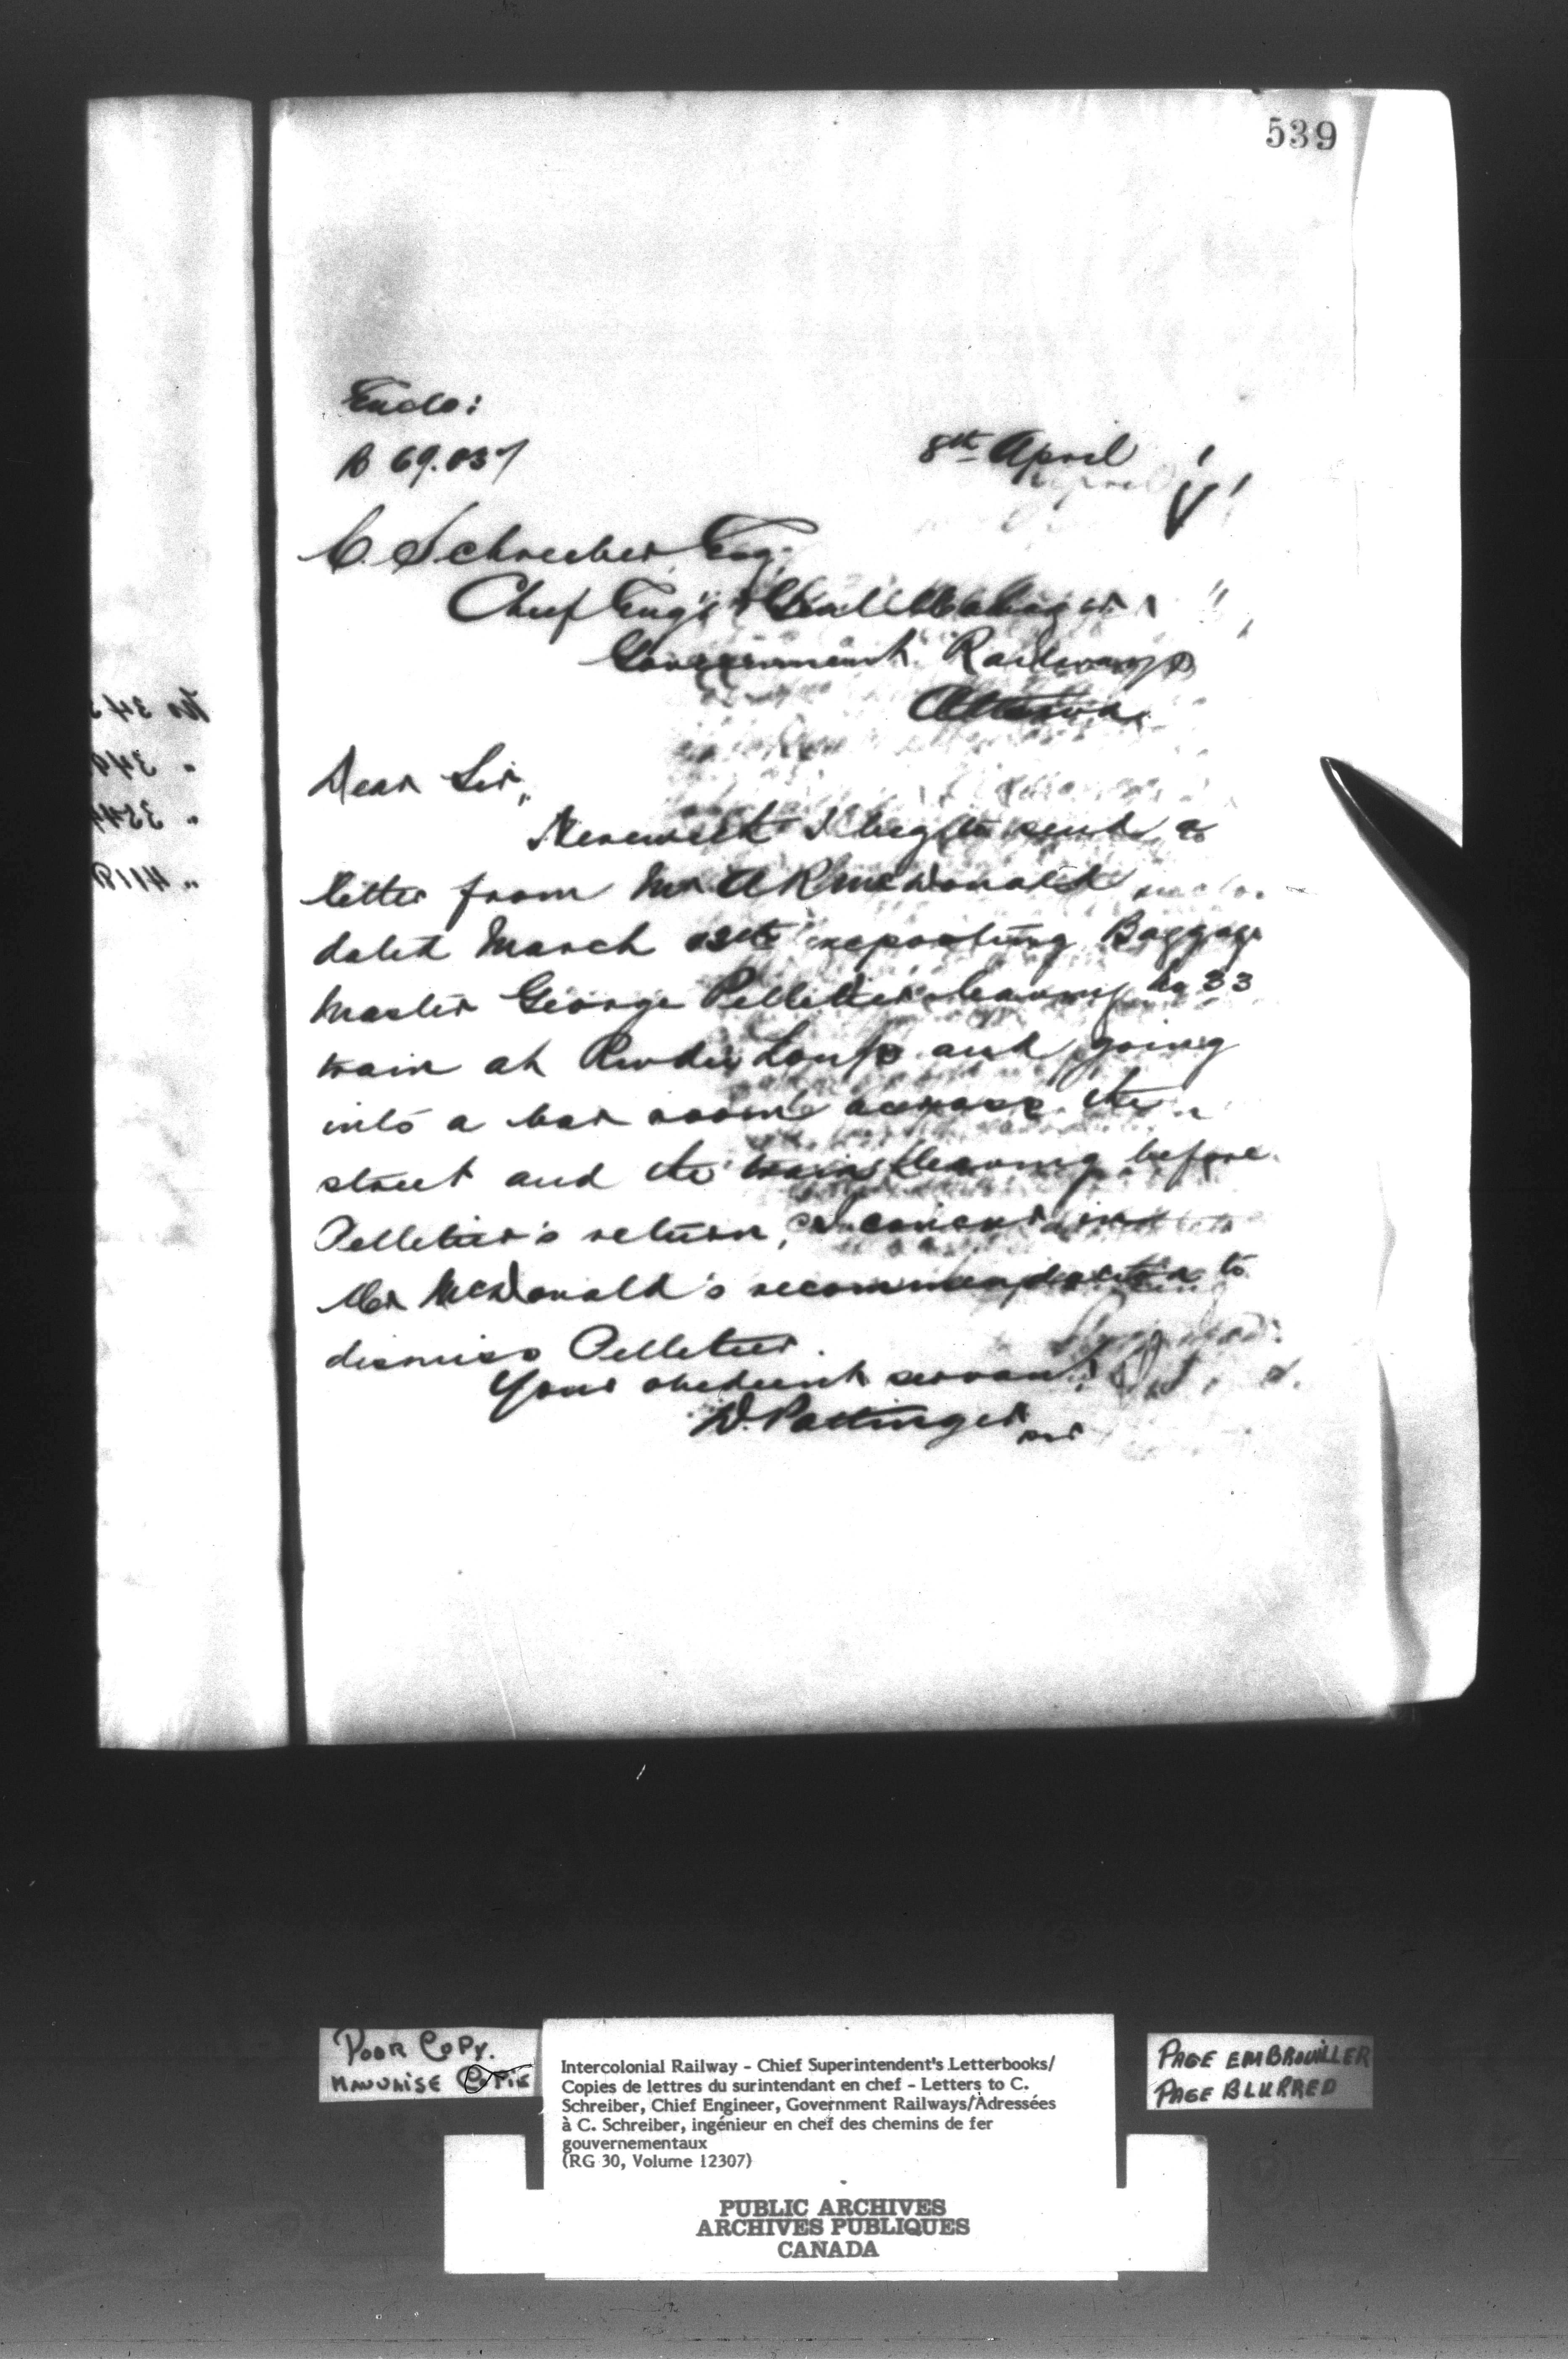 539
Enclo:
B 69.037
8th April
C. Schreiber, Esq.
Chief Eng'r & Genl Manager
Government Railways
Ottawa
Dear Sir,
Herewith I beg to send a
letter from Mr A R McDonald
dated March reporting Baggage
Master George Pelletier leaving No 33
train at Riv du Loup and going
into a bar room across the
street and the train leaving before
Pelletier's return, I concur in
Mr McDonald's recommendation to
dismiss Pelletier.
Your obedient servant
D. Pottinger
Poor Copy.
Mauvaise Copie
Intercolonial Railway - Chief Superintendent's Letterbooks/
Copies de lettres du surintendant en chef - Letters to C.
Schreiber, Chief Engineer, Government Railways/Adressées
à C. Schreiber, ingénieur en chef des chemins de fer
gouvernementaux
(RG 30, Volume 12307)
PUBLIC ARCHIVES
ARCHIVES PUBLIQUES
CANADA
PAGE EMBROUILLER
PAGE BLURRED